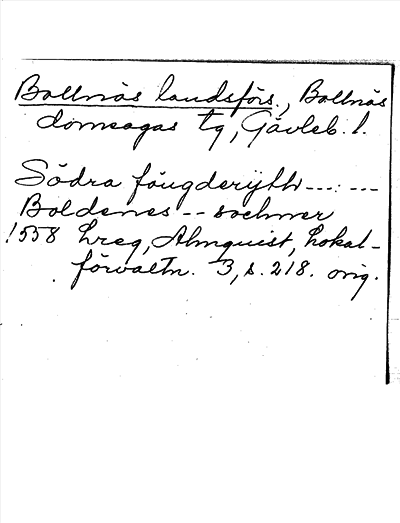 Bollnäs landsförs., Bollnäs
domsagas tg, Gävleb. l.
Södra föugderijth ---:---
Boldenes -- sochner
1558 Lreg, Almquist, Lokal-
förvaltn. 3, s. 218. orig.